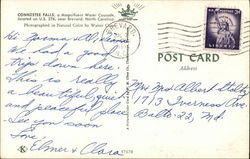 CONNESTEE FALLS, a Magnificent Water Cascade,
located on U.S. 276, near Brevard, North Carolina.
Photographed in Natural Color by Walter
Hi Norma & 
We had a good
trip down here.
This is really
a beautiful, quiet
and peaceful place
See you soon
Love,
Elmer & Clara
POST CARD
Address
Mrs Albert
1713 Inverness Ave
Balto-22, Md.
LIBERTY